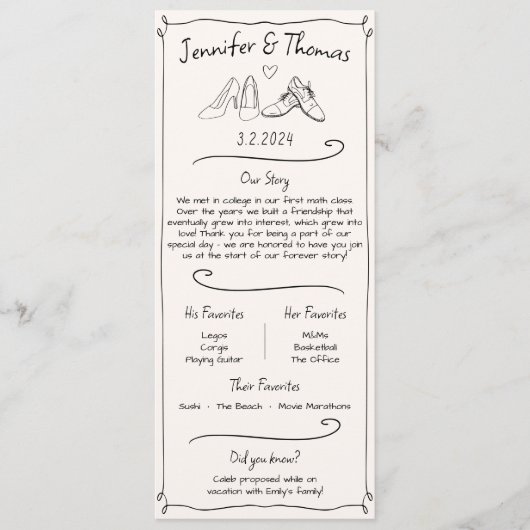 Jennifer & Thomas
3.2.2024
Our Story
We met in college in our first math class.
Over the years we built a friendship that
eventually grew into interest, which grew into
love! Thank you for being a part of our
special day - we are honored to have you join
us at the start of our forever story!
His Favorites
Legos
Corgis
Playing Guitar
Her Favorites
M&Ms
Basketball
The Office
Their Favorites
Sushi • The Beach • Movie Marathons
Did you know?
Caleb proposed while on
vacation with Emily's family!